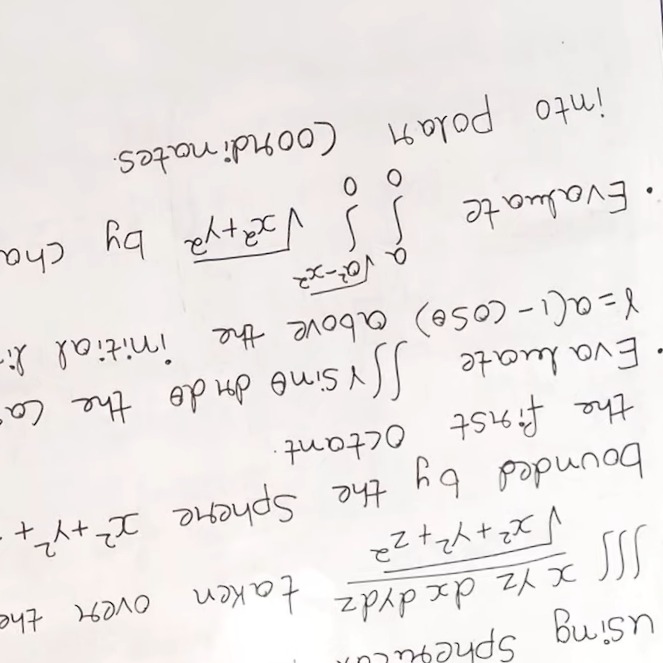 using
∭ xyz dx dy dz / √x²+y²+z² taken over the
bounded by the sphere x²+y²+
the first octant.
• Evaluate ∬ r sinθ dr dθ the
r = a(1-cosθ) above the initial
• Evaluate ∫₀ᵃ ∫₀^√a²-x² √x²+y² by
into polar Coordinates.